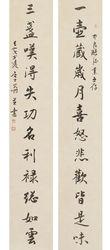 一壺藏歲月喜怒悲歡皆是味
三盞嘆得失功名利祿總如雲